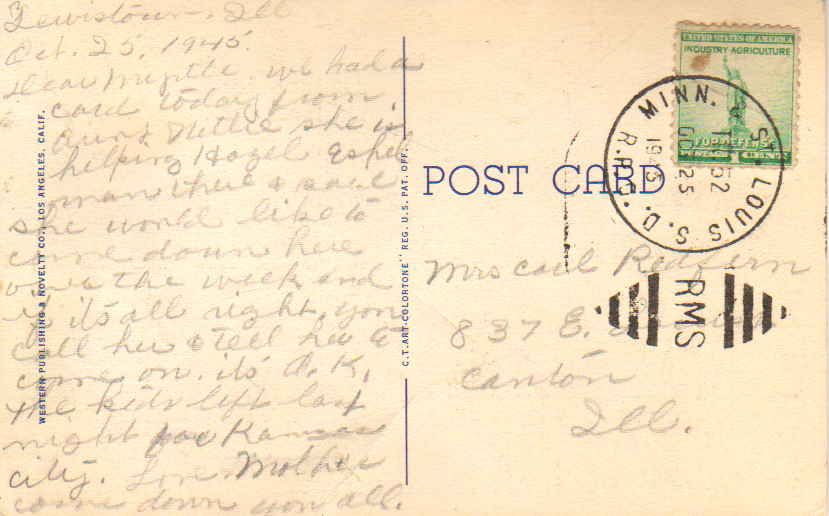 Lewistown, Ill
Oct. 25, 1945.
Dear Myrtle we had a
card today from
Aunt Nettie she is
helping Hazel
man there & said
she would like to
come down here
over the week end
if it's all right, you
call her & tell her to
come on. its O.K.
The Kids left last
night for Kansas
city. Love Mother
come down you all.
WESTERN PUBLISHING & NOVELTY CO., LOS ANGELES, CALIF.
C.T. ART-COLORTONE" REG. U.S. PAT. OFF.
POST CARD
UNITED STATES OF AMERICA
INDUSTRY AGRICULTURE
FOR DEFENSE
POSTAGE 1 CENT
MINN. & ST LOUIS S.D.
R.P.O.
152
OCT 25
1945
RMS
Mrs Carl Redfern
837 E.
Canton
Ill.